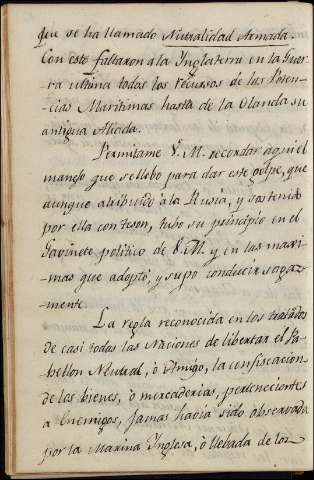 que se ha llamado Neutralidad Armada.
Con esto faltaron a la Inglaterra en la Guer-
ra ultima todos los recursos de las Poten-
cias Maritimas hasta de la Olanda su
antigua Aliada.
Permitame V. M. recordar aqui el
manejo que se llebo para dar este golpe, que
aunque atribuido à la Rusia, y sostenido
por ella con teson, tubo su principio en el
Gavinete politico de V. M. y en las maxi-
mas que adoptó, y supo conducir sagaz-
mente.
La regla reconocida en los tratados
de casi todas las Naciones de libertar el Pa-
bellon Neutral, ò Amigo, la confiscacion
de los bienes, ò mercaderias, pertenecientes
a Enemigos, jamas havia sido observada
por la Marina Inglesa, ò llebada de los